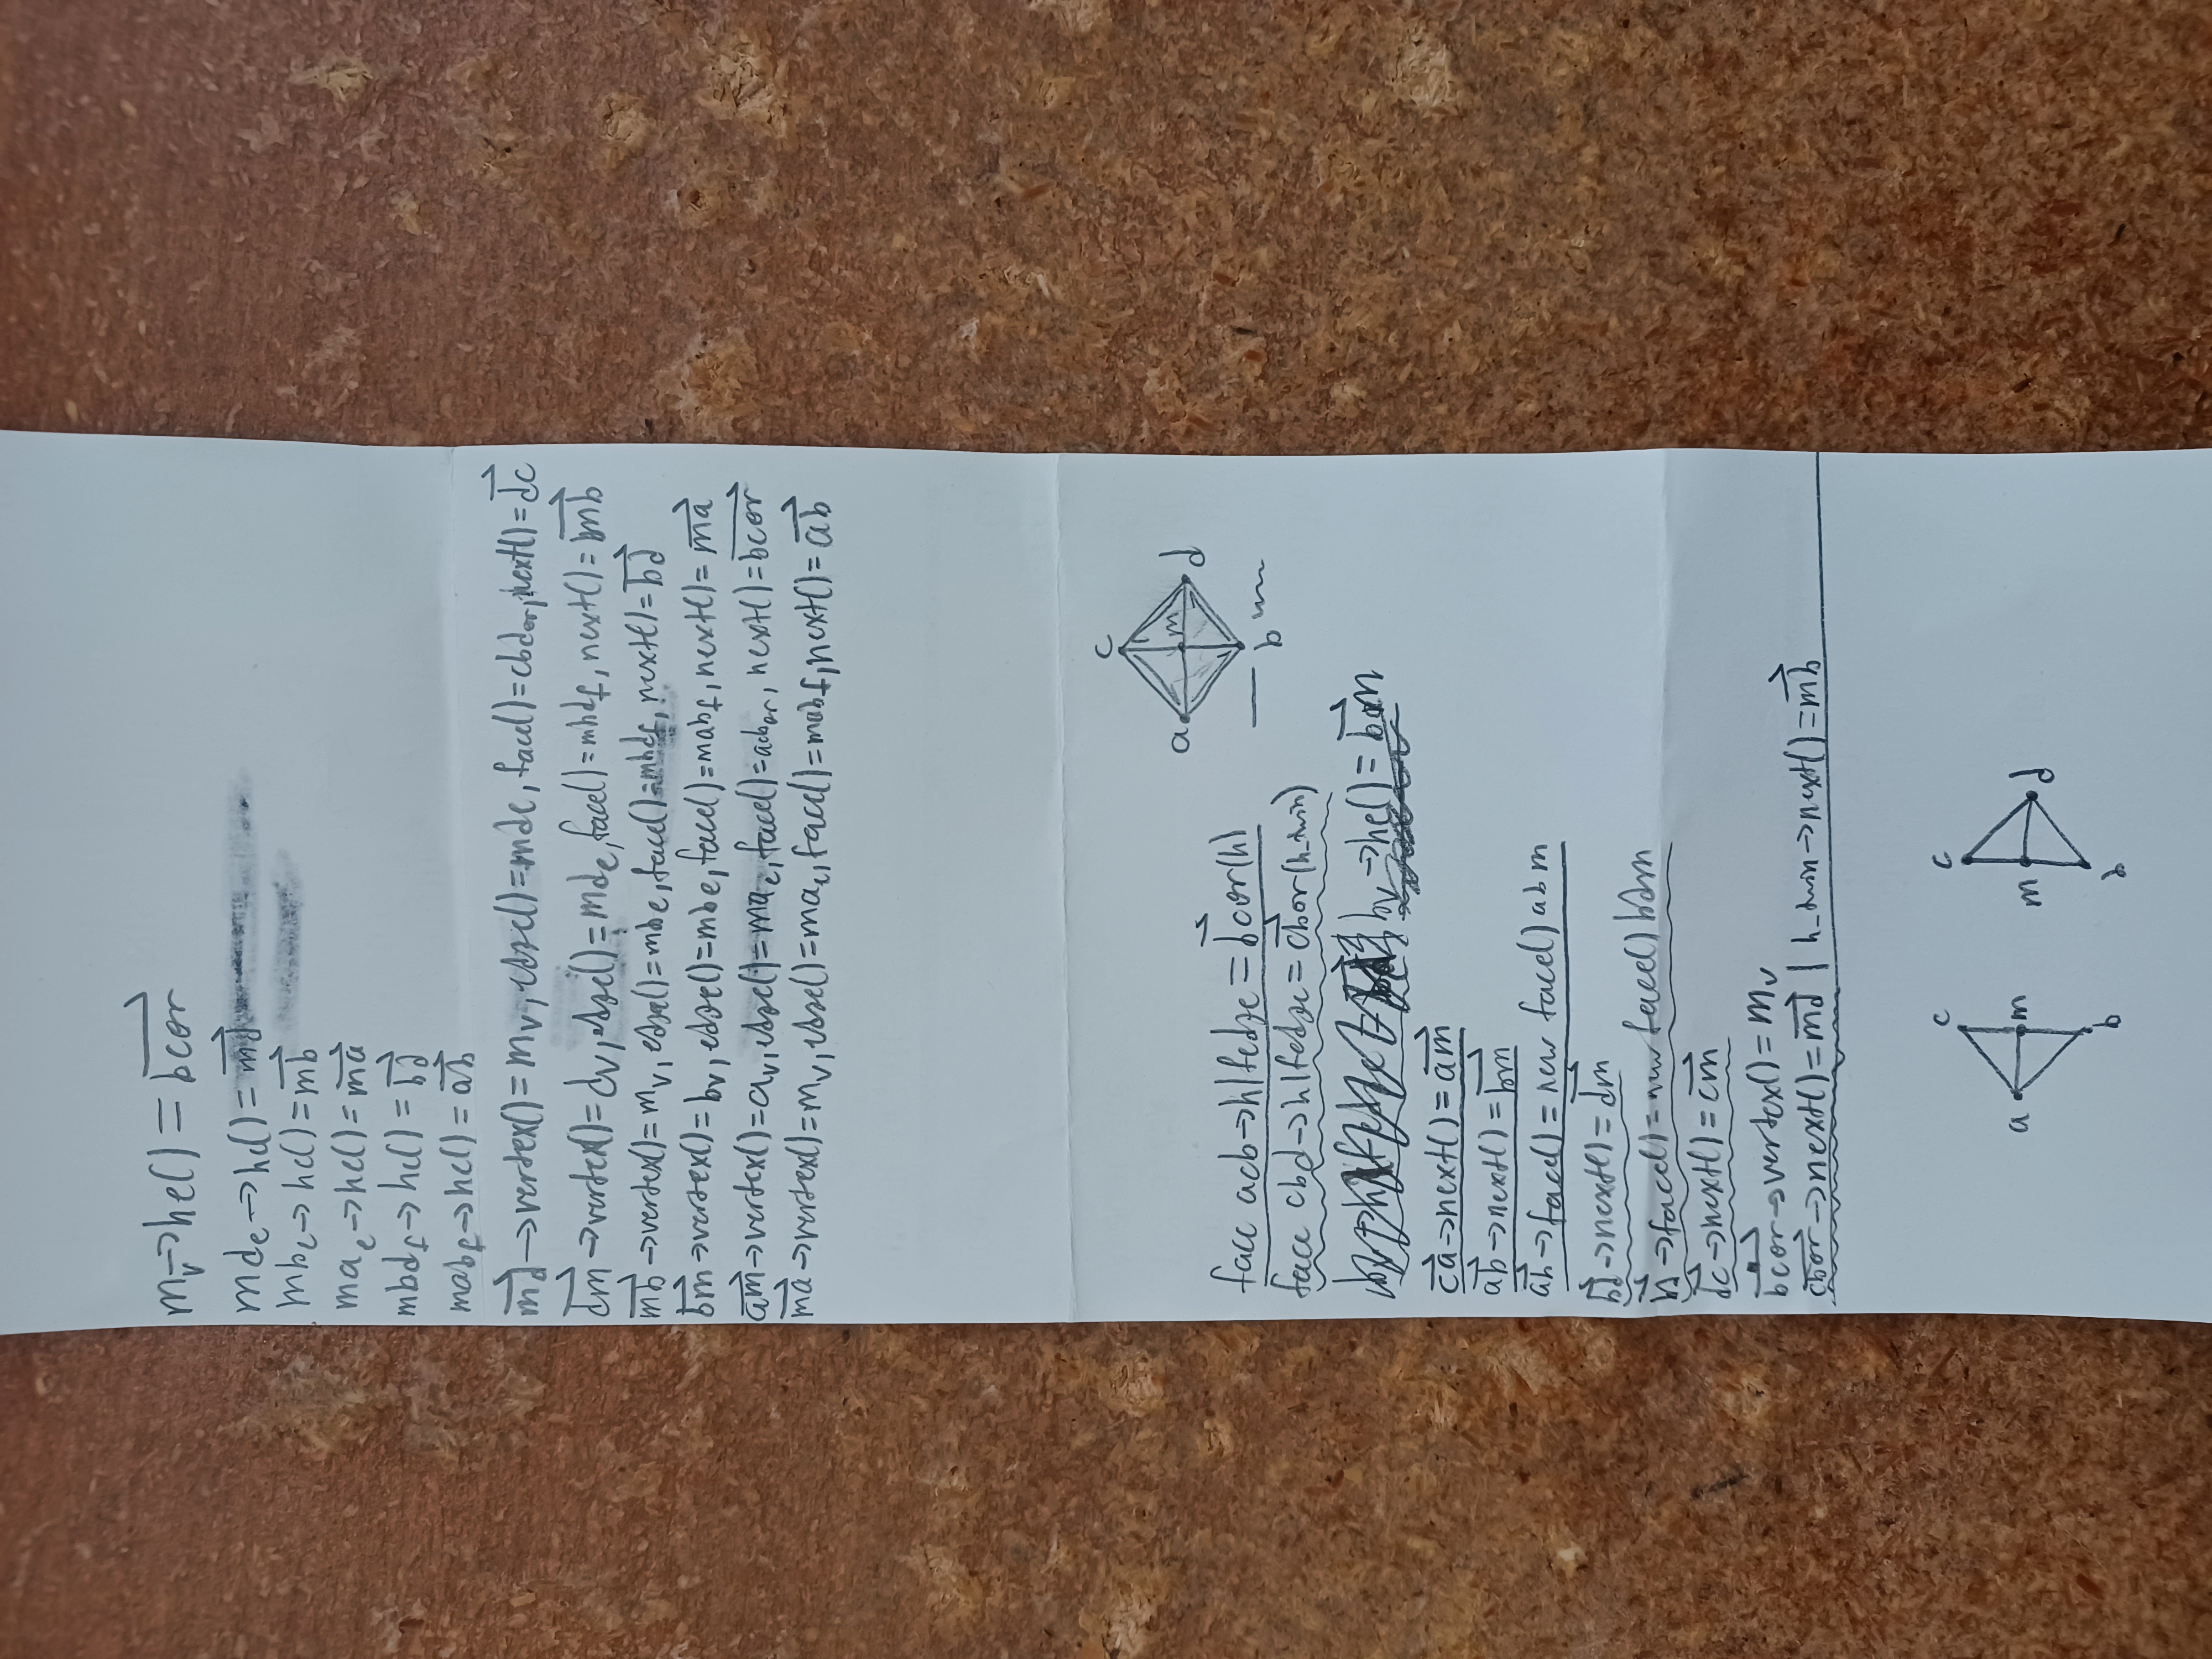 mv→he() = bcor
mde→he() = md
mbe→he() = mb
mae→he() = ma
mbdf→he() = bd
mabf→he() = ab
md→vertex() = mv, edge() = mde, face() = cbdor, next() = dc
dm→vertex() = dv, edge() = mde, face() = mbdf, next() = mb
mb→vertex() = mv, edge() = mbe, face() = mbdf, next() = bd
bm→vertex() = bv, edge() = mbe, face() = mabf, next() = ma
am→vertex() = av, edge() = mae, face() = acbor, next() = bcor
ma→vertex() = mv, edge() = mae, face() = mabf, next() = ab
c
a m d
b
face acb→hlfedge = bcor(h)
face cbd→hlfedge = cbor(h_twin)
bv→he() = bm
ca→next() = am
ab→next() = bm
ab→face() = new face() abm
bd→next() = dm
bd→face() = new face() bdm
dc→next() = cm
bcor→vertex() = mv
cbor→next() = md | h_twin→next() = mb
c c
a m m d
b b